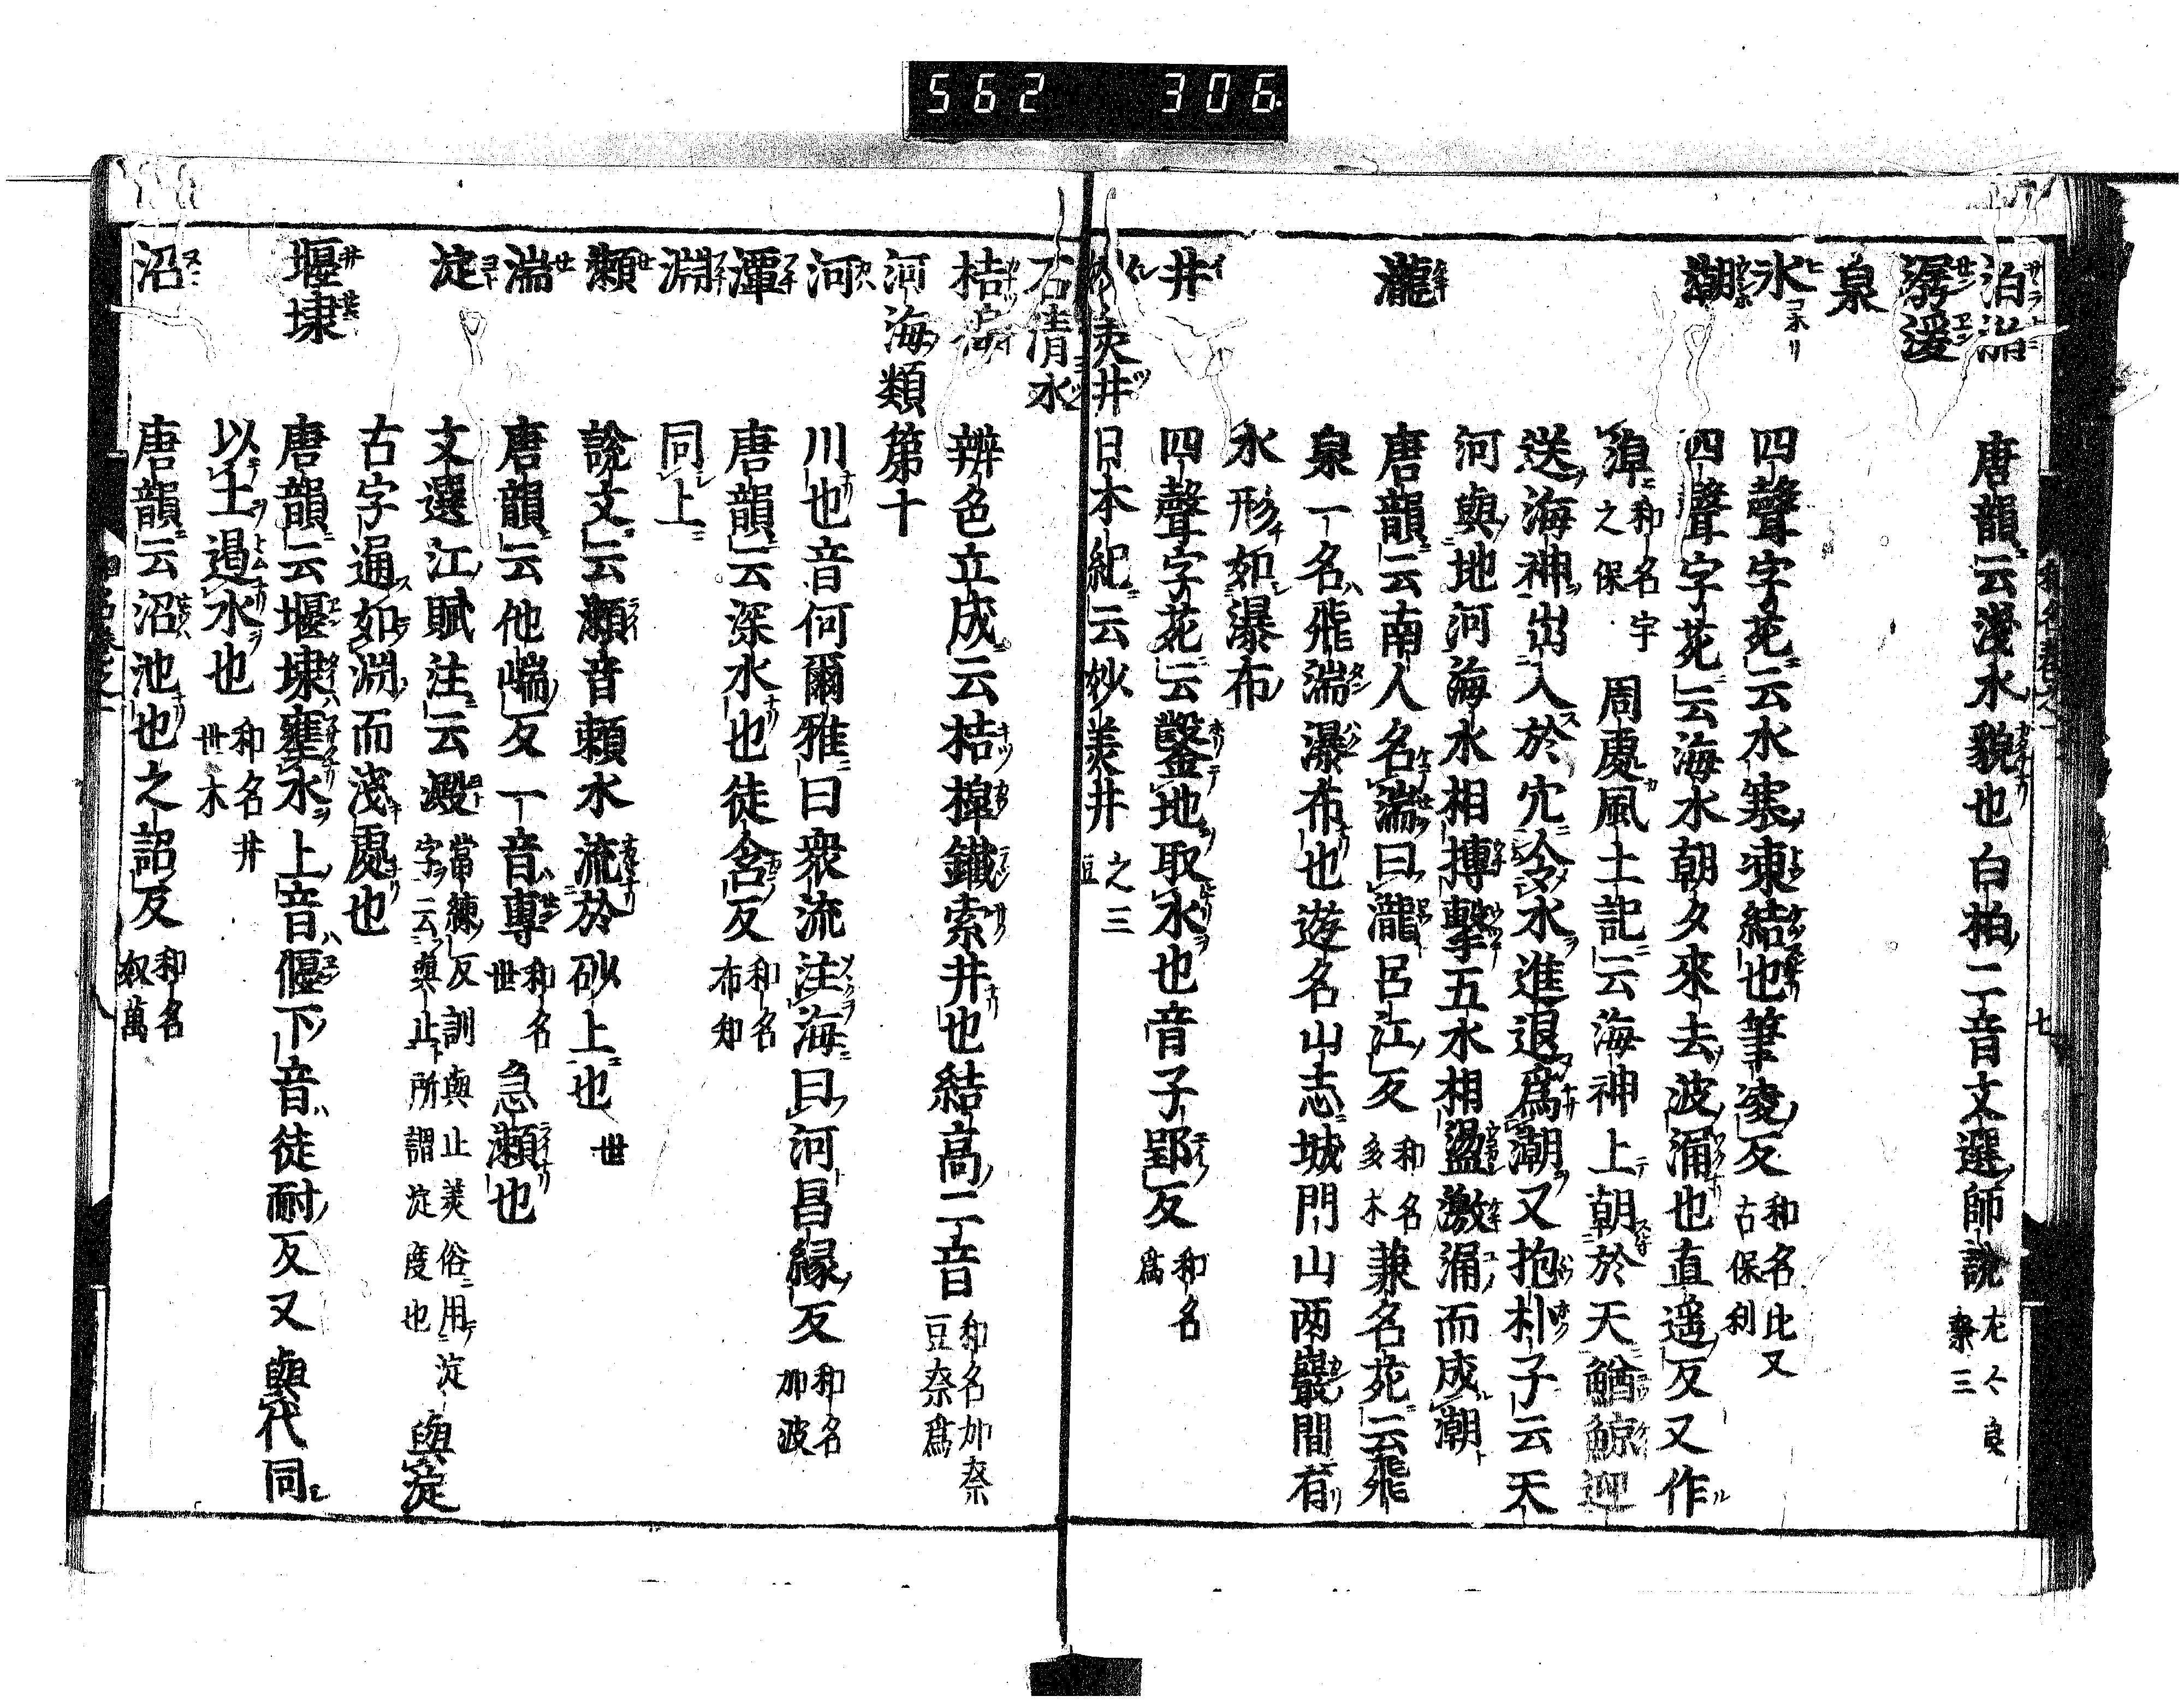 562 306
泊湝 唐韻云淺水貌也白柏二音文選師說 左々良奈三
潺湲
泉
氷 四聲字苑云水寒凍結也筆凌反 和名比又古保利
潮 四聲字苑云海水朝夕來去波涌也直遥反又作
淖 和名宇之保 周處風土記云海神上朝於天鰌鯨迎
送海神出入於穴令水進退爲潮又抱朴子云天
河與地河海水相搏擊五水相盪激涌而成潮
瀧 唐韻云南人名湍曰瀧呂江反 和名多木 兼名苑云飛
泉一名飛湍瀑布也遊名山志城門山兩巖間有
水形如瀑布
井 四聲字苑云鑿地取水也音子郢反 和名爲
妙美井 日本紀云妙美井 之三豆
石清水
桔槔 辨色立成云桔槹鐵索井也結高二音 和名加奈豆奈爲
河海類第十
河 川也音何爾雅曰衆流注海曰河昌縁反 和名加波
潭 唐韻云深水也徒含反 和名布知
淵 同上
瀬 說文云瀬音頼水流於砂上也 世
湍 唐韻云他喘反一音專 和名世 急瀬也
淀 文選江賦注云澱 當練反訓與止美俗用淀字云與止所謂淀度也 與淀
古字通如淵而淺處也
堰埭 唐韻云堰埭壅水上音偃下音徒耐反又與代同
以土遏水也 和名井世木
沼 唐韻云沼池也之詔反 和名奴萬